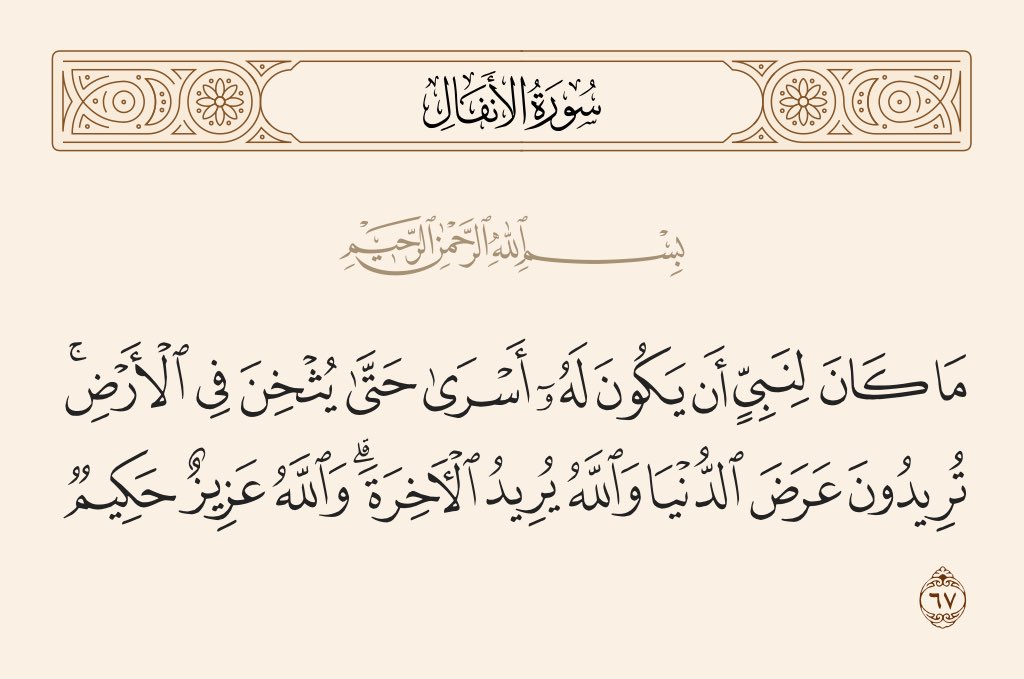 سُورَةُ الأَنفَالِ
بِسْمِ ٱللَّهِ ٱلرَّحْمَٰنِ ٱلرَّحِيمِ
مَا كَانَ لِنَبِىٍّ أَن يَكُونَ لَهُۥٓ أَسْرَىٰ حَتَّىٰ يُثْخِنَ فِى ٱلْأَرْضِ ۚ
تُرِيدُونَ عَرَضَ ٱلدُّنْيَا وَٱللَّهُ يُرِيدُ ٱلْـَٔاخِرَةَ ۗ وَٱللَّهُ عَزِيزٌ حَكِيمٌ
٦٧